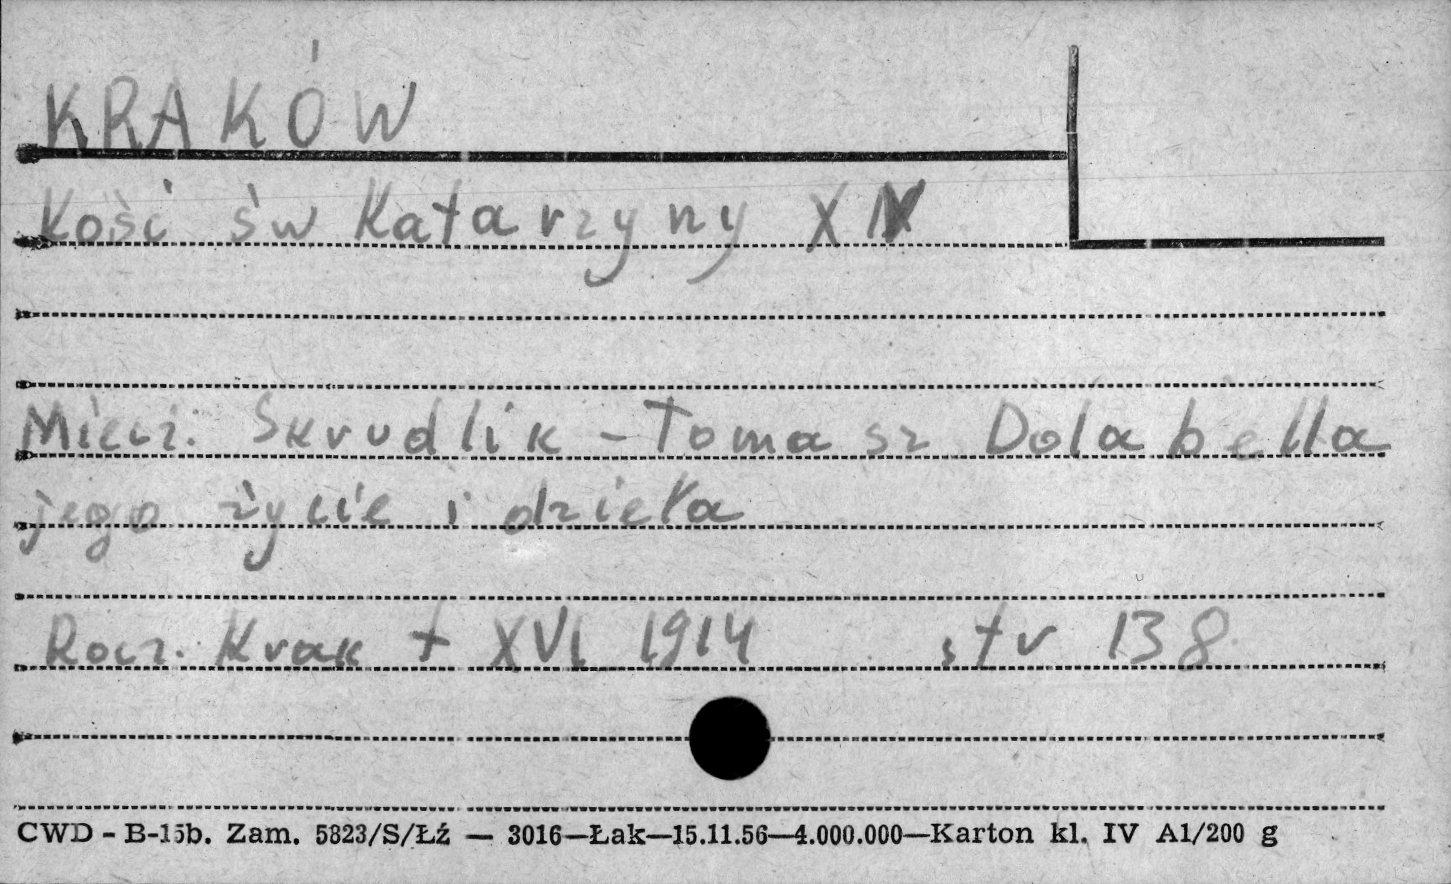 KRAKÓW
Kość św Katarzyny XIV
Miecz. Skrudlik – Tomasz Dolabella
jego życie i dzieła
Rocz. Krak t XVI 1914 str 138
CWD - B-15b. Zam. 5823/S/Łź — 3016—Łak—15.11.56—4.000.000—Karton kl. IV A1/200 g